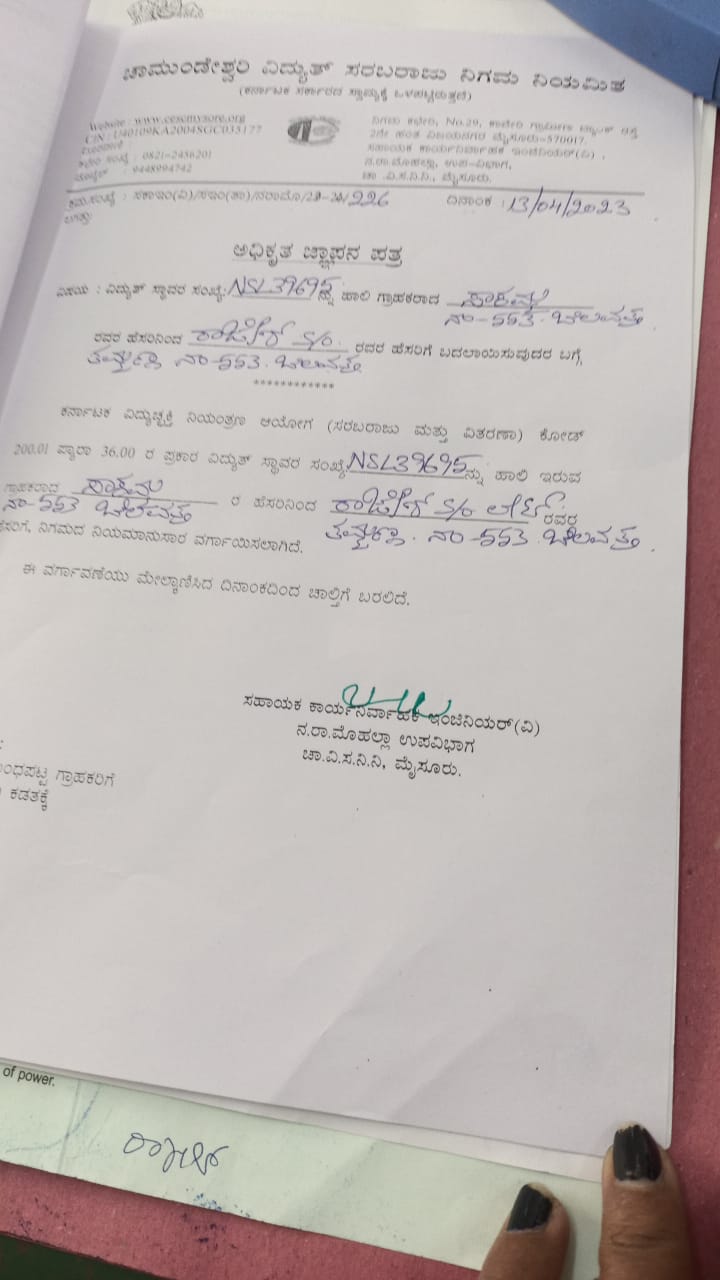 ಚಾಮುಂಡೇಶ್ವರಿ ವಿದ್ಯುತ್ ಸರಬರಾಜು ನಿಗಮ ನಿಯಮಿತ
(ಕರ್ನಾಟಕ ಸರ್ಕಾರದ ಸ್ವಾಮ್ಯಕ್ಕೆ ಒಳಪಟ್ಟಿರುತ್ತದೆ)
Website : www.cescmysore.org
CIN : U40109KA2004SGC035177
: 0821-2456201
: 9448994742
ನಿಗಮ ಕಛೇರಿ, No.29, ಕಾವೇರಿ ಗ್ರಾಮೀಣ ಬ್ಯಾಂಕ್ ರಸ್ತೆ
2ನೇ ಹಂತ ವಿಜಯನಗರ ಮೈಸೂರು-570017.
ಸಹಾಯಕ ಕಾರ್ಯನಿರ್ವಾಹಕ ಇಂಜಿನಿಯರ್(ವಿ) ,
ನ.ರಾ.ಮೊಹಲ್ಲಾ, ಉಪ-ವಿಭಾಗ,
ಚಾ .ವಿ.ಸ.ನಿ.ನಿ., ಮೈಸೂರು.
ಕ್ರಮ.ಸಂಖ್ಯೆ : ಸಕಾಇಂ(ವಿ)/ಸಇಂ(ತಾ)/ನರಾಮೊ/23-24/226 ದಿನಾಂಕ :13/04/2023
ಅಧಿಕೃತ ಜ್ಞಾಪನ ಪತ್ರ
ವಿಷಯ : ವಿದ್ಯುತ್ ಸ್ಥಾವರ ಸಂಖ್ಯೆ:NSL39695ನ್ನು ಹಾಲಿ ಗ್ರಾಹಕರಾದ
ನಂ-553 ಬೆಲವತ್ತ
ರವರ ಹೆಸರಿನಿಂದ S/o. ರವರ ಹೆಸರಿಗೆ ಬದಲಾಯಿಸುವುದರ ಬಗ್ಗೆ,
ನಂ-553. ಬೆಲವತ್ತ
************
ಕರ್ನಾಟಕ ವಿದ್ಯುಚ್ಛಕ್ತಿ ನಿಯಂತ್ರಣ ಆಯೋಗ (ಸರಬರಾಜು ಮತ್ತು ವಿತರಣಾ) ಕೋಡ್
200.01 ಪ್ಯಾರಾ 36.00 ರ ಪ್ರಕಾರ ವಿದ್ಯುತ್ ಸ್ಥಾವರ ಸಂಖ್ಯೆ:NSL39695ನ್ನು ಹಾಲಿ ಇರುವ
ಗ್ರಾಹಕರಾದ ರ ಹೆಸರಿನಿಂದ S/o ಲೇಟ್ ರವರ
ನಂ-553 ಬೆಲವತ್ತ ನಂ-553 ಬೆಲವತ್ತ.
ಹೆಸರಿಗೆ, ನಿಗಮದ ನಿಯಮಾನುಸಾರ ವರ್ಗಾಯಿಸಲಾಗಿದೆ.
ಈ ವರ್ಗಾವಣೆಯು ಮೇಲ್ಕಾಣಿಸಿದ ದಿನಾಂಕದಿಂದ ಚಾಲ್ತಿಗೆ ಬರಲಿದೆ.
ಸಹಾಯಕ ಕಾರ್ಯನಿರ್ವಾಹಕ ಇಂಜಿನಿಯರ್(ವಿ)
ನ.ರಾ.ಮೊಹಲ್ಲಾ ಉಪವಿಭಾಗ
ಚಾ.ವಿ.ಸ.ನಿ.ನಿ, ಮೈಸೂರು.
ಗ್ರಾಹಕರಿಗೆ
ಕಡತಕ್ಕೆ
of power.